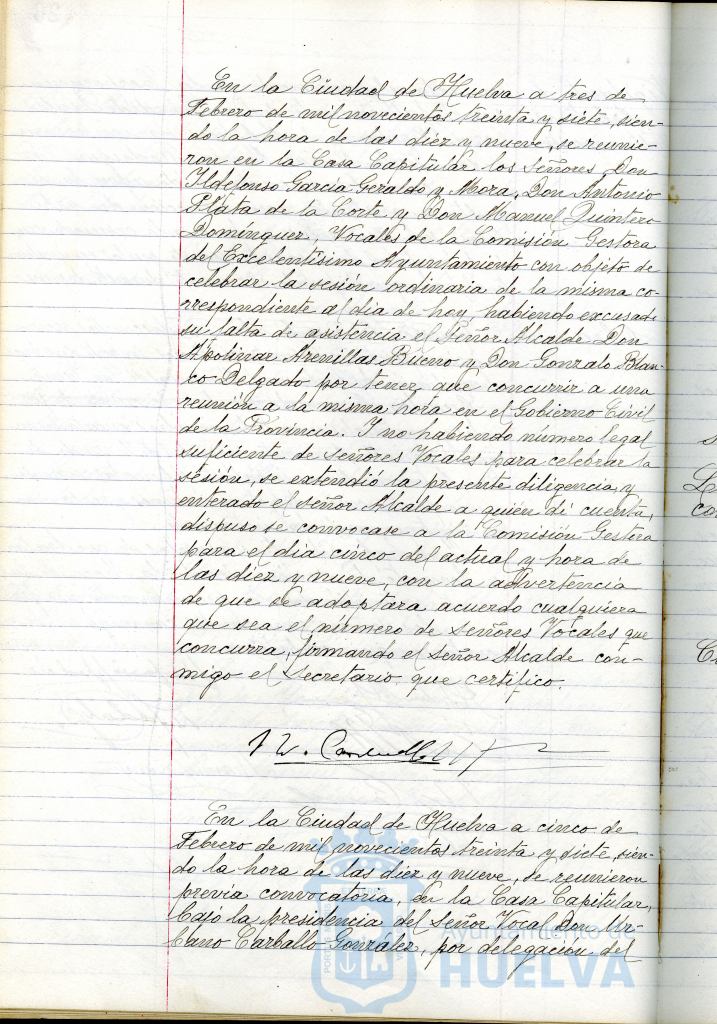 En la Ciudad de Huelva a tres de
Febrero de mil novecientos treinta y siete, sien-
do la hora de las diez y nueve, se reunie-
ron en la Casa Capitular los señores Don
Ildefonso García Geraldo y Mora, Don Antonio
Plata de la Corte y Don Manuel Quintero
Dominguez, Vocales de la Comisión Gestora
del Excelentísimo Ayuntamiento con objeto de
celebrar la sesión ordinaria de la misma co-
rrespondiente al día de hoy, habiendo excusado
su falta de asistencia el Señor Alcalde Don
Apolinar Arenillas Bueno y Don Gonzalo Blan-
co Delgado por tener que concurrir a una
reunión a la misma hora en el Gobierno Civil
de la Provincia. Y no habiendo número legal
suficiente de señores Vocales para celebrar la
sesión, se extendió la presente diligencia y
enterado el señor Alcalde a quien di cuenta,
dispuso se convocase a la Comisión Gestora
para el día cinco del actual y hora de
las diez y nueve, con la advertencia
de que se adoptara acuerdo cualquiera
que sea el número de señores Vocales que
concurra, firmando el señor Alcalde con-
migo el Secretario, que certifico.
En la Ciudad de Huelva a cinco de
Febrero de mil novecientos treinta y siete, sien-
do la hora de las diez y nueve, se reunieron
previa convocatoria, en la Casa Capitular,
bajo la presidencia del Señor Vocal Don Ur-
bano Carballo González, por delegación del
Ayuntamiento
HUELVA